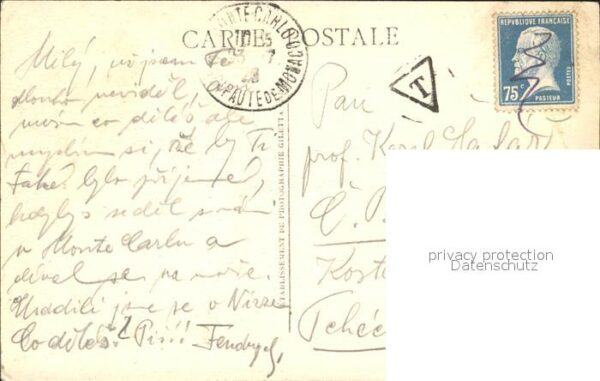 CARTE POSTALE
MONTE-CARLO
PTÉ DE MONACO
REPUBLIQUE FRANÇAISE
75c
POSTES
PASTEUR
T
Milý, už jsem Tě
dlouho neviděl,
nevím co děláš ale
myslím si, že by Ti
také bylo příjemné,
kdybys seděl s námi
v Monte Carlu a
díval se na moře.
jsme se v Nizze
Co děláš? Piš!!
Pan
prof. Karel
Č.
Koste
Tchéc
ETABLISSEMENT DE PHOTOGRAPHIE GILETTA
privacy protection
Datenschutz